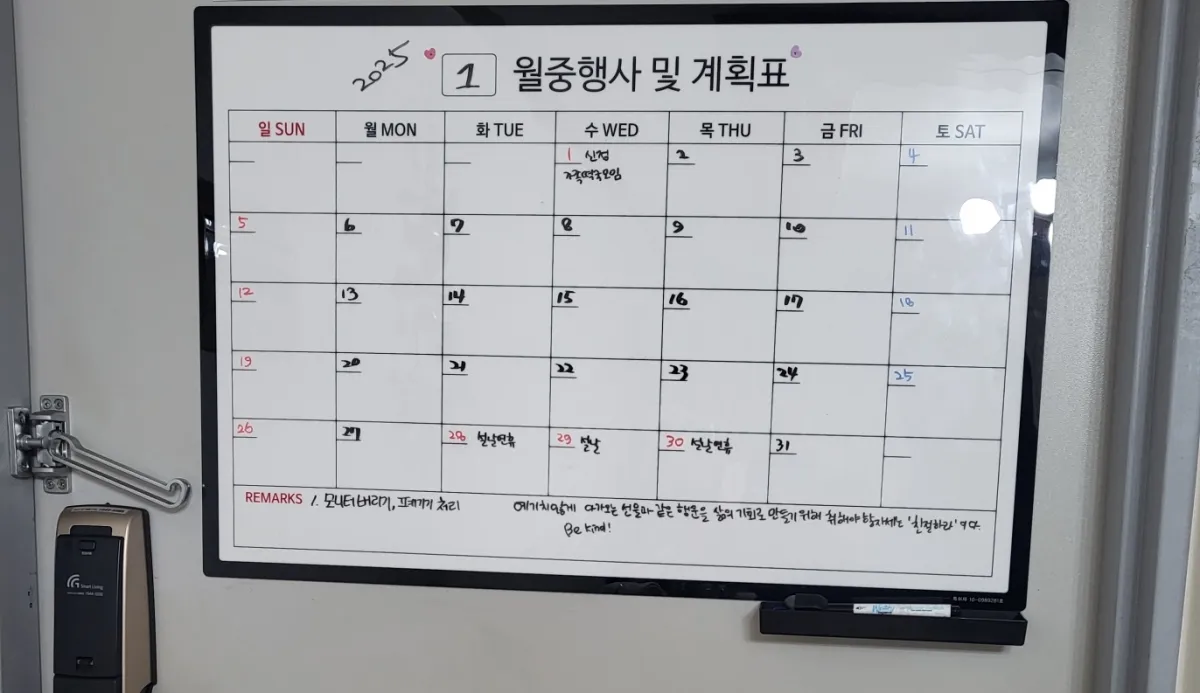 2025 1 월중행사 및 계획표
일 SUN 월 MON 화 TUE 수 WED 목 THU 금 FRI 토 SAT
1 신정 2 3 4
가족떡국모임
5 6 7 8 9 10 11
12 13 14 15 16 17 18
19 20 21 22 23 24 25
26 27 28 설날연휴 29 설날 30 설날연휴 31
REMARKS 1. 모니터버리기, 프레기기 처리 예기치않게 다가오는 선물과 같은 행운을 삶의 기회로 만들기 위해 취해야 할 자세는 '친절하라' 이다.
Be kind!
Smart Living